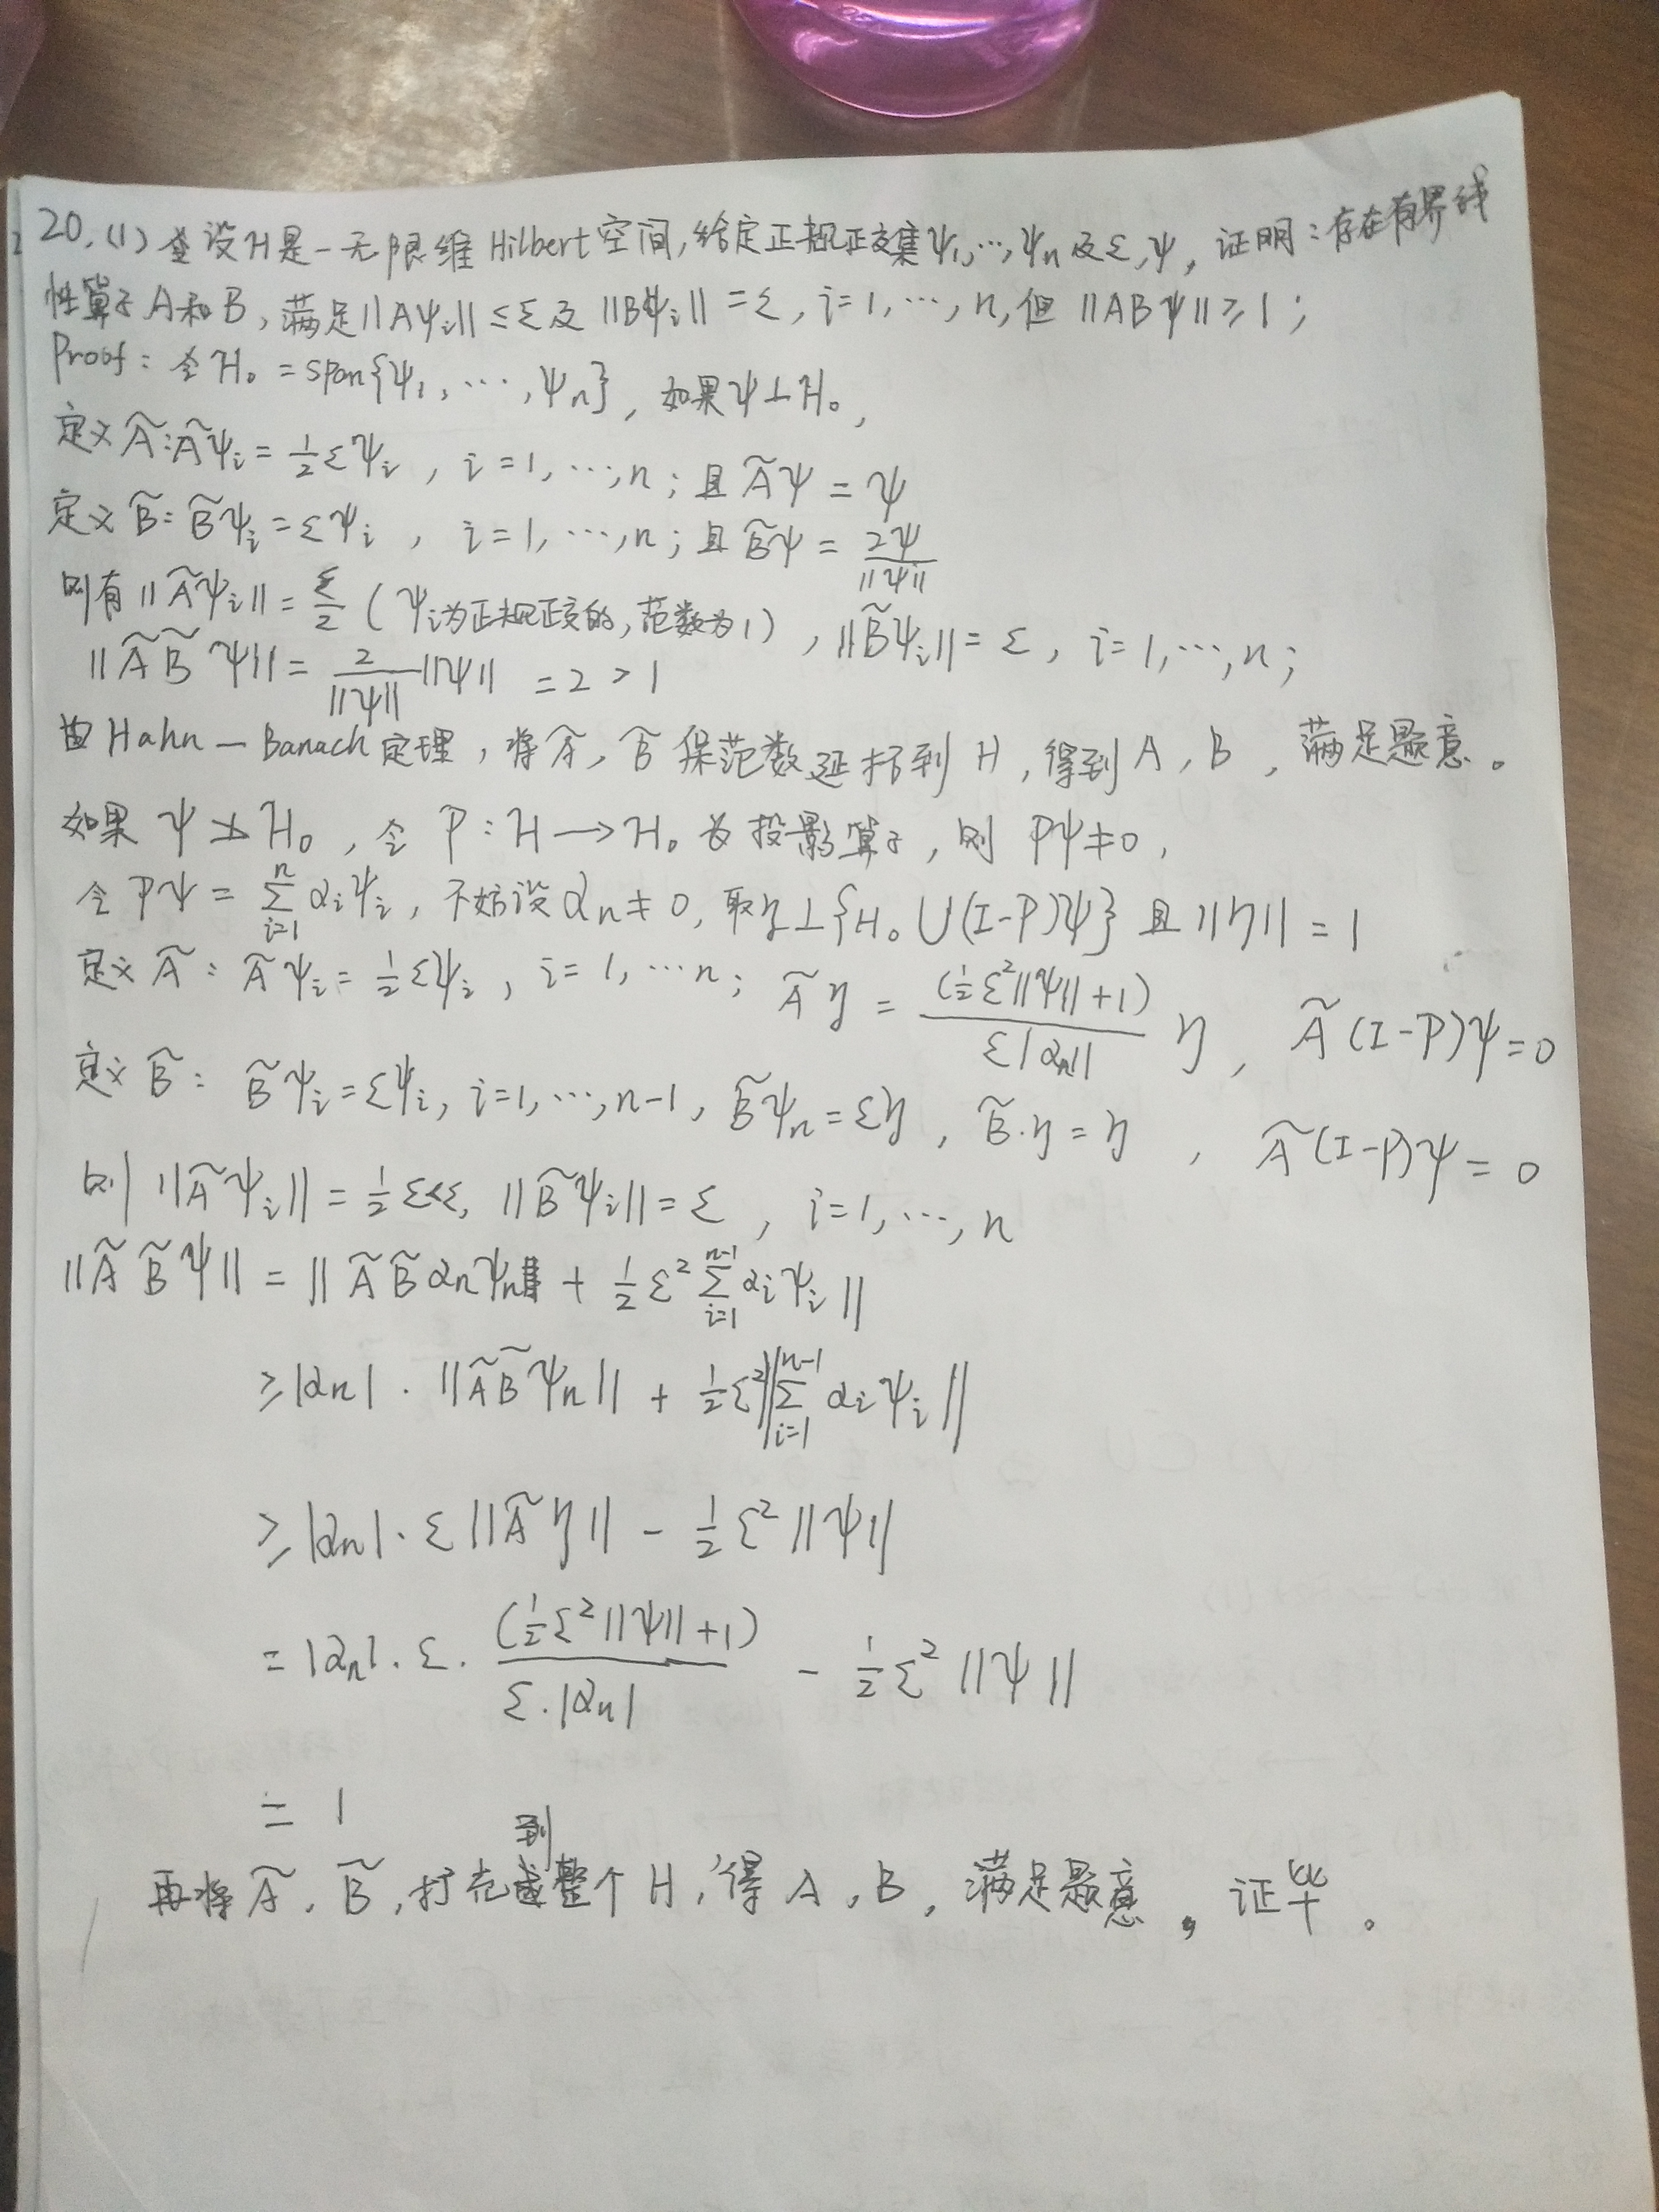 20.(1) 设H是一无限维Hilbert空间,给定正规正交集ψ₁,…,ψₙ及ε,ψ, 证明:存在有界线
性算子A和B,满足||Aψᵢ||≤ε及||Bψᵢ||=ε, i=1,…,n,但||ABψ||≥1;
Proof: 令H₀=span{ψ₁,…,ψₙ}, 如果ψ⊥H₀,
定义Ã:Ãψᵢ=½εψᵢ, i=1,…,n; 且Ãψ=ψ
定义B̃:B̃ψᵢ=εψᵢ, i=1,…,n; 且B̃ψ=2ψ/||ψ||
则有||Ãψᵢ||=ε/2 (ψᵢ为正规正交的,范数为1), ||B̃ψᵢ||=ε, i=1,…,n;
||ÃB̃ψ||=2/||ψ|| ||ψ||=2>1
由Hahn-Banach定理,将Ã,B̃保范数延拓到H,得到A,B,满足题意。
如果ψ⊥̸H₀,令P:H→H₀为投影算子,则Pψ≠0,
令Pψ=∑ᵢ₌₁ⁿ αᵢψᵢ,不妨设αₙ≠0,取η⊥{H₀∪(I-P)ψ}且||η||=1
定义Ã: Ãψᵢ=½εψᵢ, i=1,…n; Ãη=(½ε²||ψ||+1)/(ε|αₙ|) η, Ã(I-P)ψ=0
定义B̃: B̃ψᵢ=εψᵢ, i=1,…,n-1, B̃ψₙ=εη, B̃·η=η, Ã(I-P)ψ=0
则||Ãψᵢ||=½ε<ε, ||B̃ψᵢ||=ε, i=1,…,n
||ÃB̃ψ||=||ÃB̃αₙψₙ+½ε²∑ᵢ₌₁ⁿ⁻¹ αᵢψᵢ||
≥|αₙ|·||ÃB̃ψₙ||+½ε²||∑ᵢ₌₁ⁿ⁻¹ αᵢψᵢ||
≥|αₙ|·ε||Ãη||-½ε²||ψ||
=|αₙ|·ε·(½ε²||ψ||+1)/(ε·|αₙ|)-½ε²||ψ||
=1
再将Ã,B̃,扩充到整个H,得A,B,满足题意,证毕。